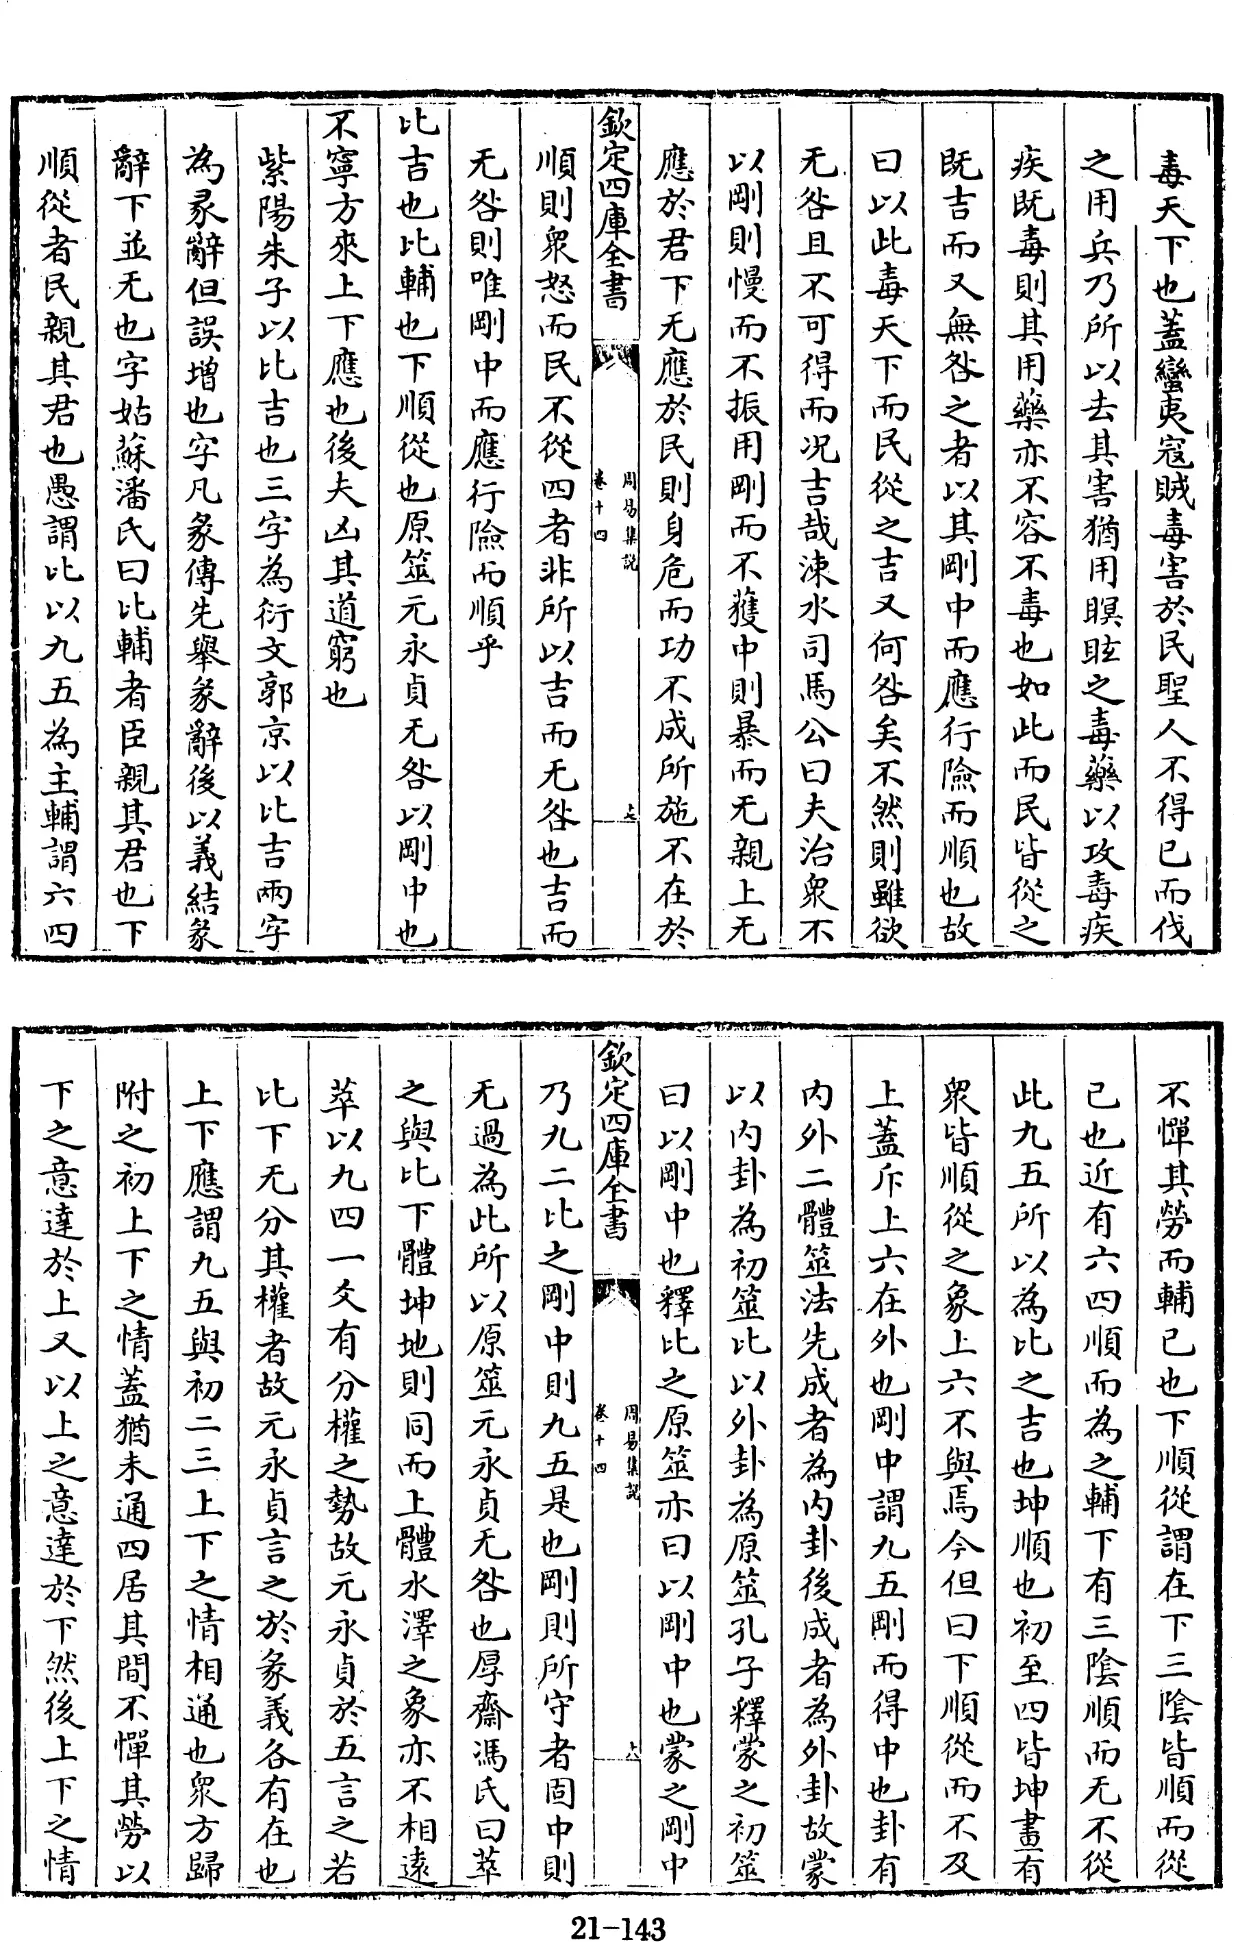 毒天下也蓋蠻夷寇賊毒害於民聖人不得已而伐
之用兵乃所以去其害猶用瞑眩之毒藥以攻毒疾
疾既毒則其用藥亦不容不毒也如此而民皆從之
既吉而又無咎之者以其剛中而應行險而順也故
曰以此毒天下而民從之吉又何咎矣不然則雖欲
无咎且不可得而况吉哉涑水司馬公曰夫治衆不
以剛則慢而不振用剛而不獲中則暴而无親上无
應於君下无應於民則身危而功不成所施不在於
欽定四庫全書
周易集說
卷十四
七
順則衆怒而民不從四者非所以吉而无咎也吉而
无咎則唯剛中而應行險而順乎
比吉也比輔也下順從也原筮元永貞无咎以剛中也
不寧方來上下應也後夫凶其道窮也
紫陽朱子以比吉也三字為衍文郭京以比吉兩字
為彖辭但誤增也字凡彖傳先舉彖辭後以義結彖
辭下並无也字姑蘇潘氏曰比輔者臣親其君也下
順從者民親其君也愚謂比以九五為主輔謂六四
不憚其勞而輔已也下順從謂在下三陰皆順而從
已也近有六四順而為之輔下有三陰順而无不從
此九五所以為比之吉也坤順也初至四皆坤畫有
衆皆順從之象上六不與焉今但曰下順從而不及
上蓋斥上六在外也剛中謂九五剛而得中也卦有
内外二體筮法先成者為内卦後成者為外卦故蒙
以内卦為初筮比以外卦為原筮孔子釋蒙之初筮
曰以剛中也釋比之原筮亦曰以剛中也蒙之剛中
欽定四庫全書
周易集說
卷十四
八
乃九二比之剛中則九五是也剛則所守者固中則
无過為此所以原筮元永貞无咎也厚齋馮氏曰萃
之與比下體坤地則同而上體水澤之象亦不相遠
萃以九四一爻有分權之勢故元永貞於五言之若
比下无分其權者故元永貞言之於彖義各有在也
上下應謂九五與初二三上下之情相通也衆方歸
附之初上下之情蓋猶未通四居其間不憚其勞以
下之意達於上又以上之意達於下然後上下之情
21-143